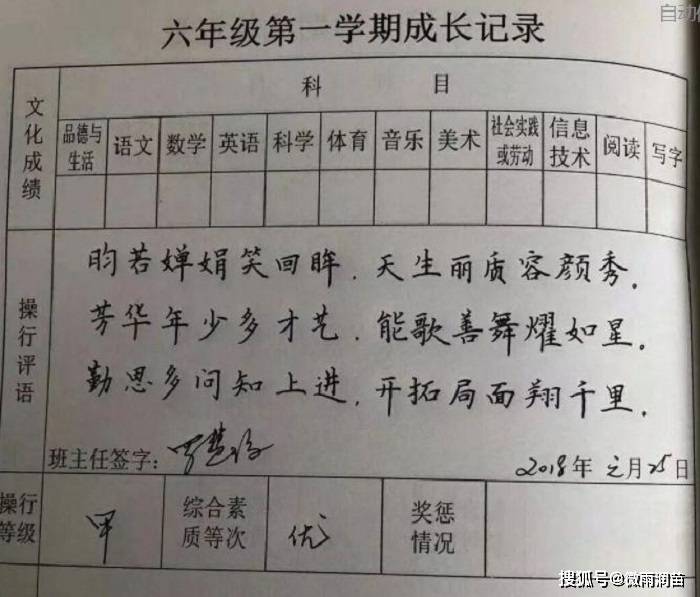 自动
六年级第一学期成长记录
科 目
文化成绩
品德与生活 语文 数学 英语 科学 体育 音乐 美术 社会实践或劳动 信息技术 阅读 写字
操行评语
昀若婵娟笑回眸，天生丽质容颜秀。
芳华年少多才艺，能歌善舞耀如星。
勤思多问知上进，开拓局面翔千里。
班主任签字：
2018年元月25日
操行等级 甲 综合素质等次 优 奖惩情况
搜狐号@微雨润苗